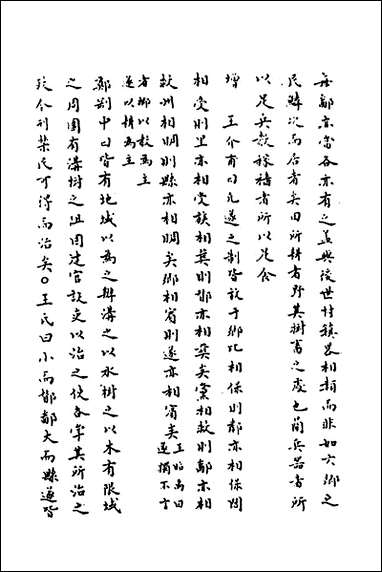 每鄙亦當各亦有之蓋與後世村鎮畧相類而非如六鄉之
民鱗次而居者矣田所耕者野其樹畜之處也簡兵器者所
以足兵教稼穡者所以足食
增 王介甫曰凡遂之制皆放于鄉比相保則鄰亦相保閭
相受則里亦相受族相葬則酇亦相葬矣黨相救則鄙亦相
救州相賙則縣亦相賙矣鄉相賓則遂亦相賓矣
王昭禹曰
遂獨不言
者鄉以教為主
遂以耕為主
鄭剛中曰皆有地域以為之辨溝之以水樹之以木有限域
之周圍有溝樹之阻固建官設吏以治之使各掌其所治之
政令刑禁民可得而治矣○王氏曰小而鄰大而縣遂皆